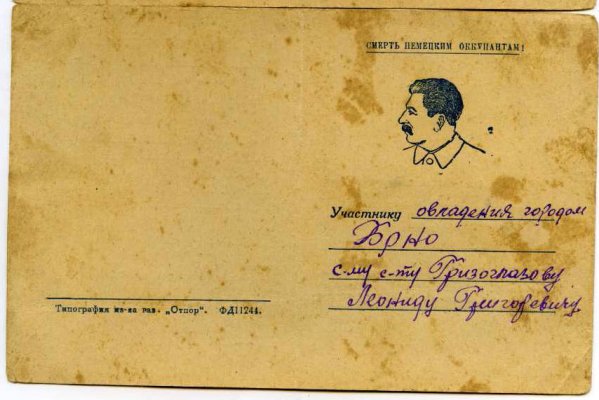 СМЕРТЬ НЕМЕЦКИМ ОККУПАНТАМ!
Участнику овладения городом
Брно
с-му с-ту Гризоглазову
Леониду Григоревичу
Типография из-ва газ. „Отпор“. ФД11244.